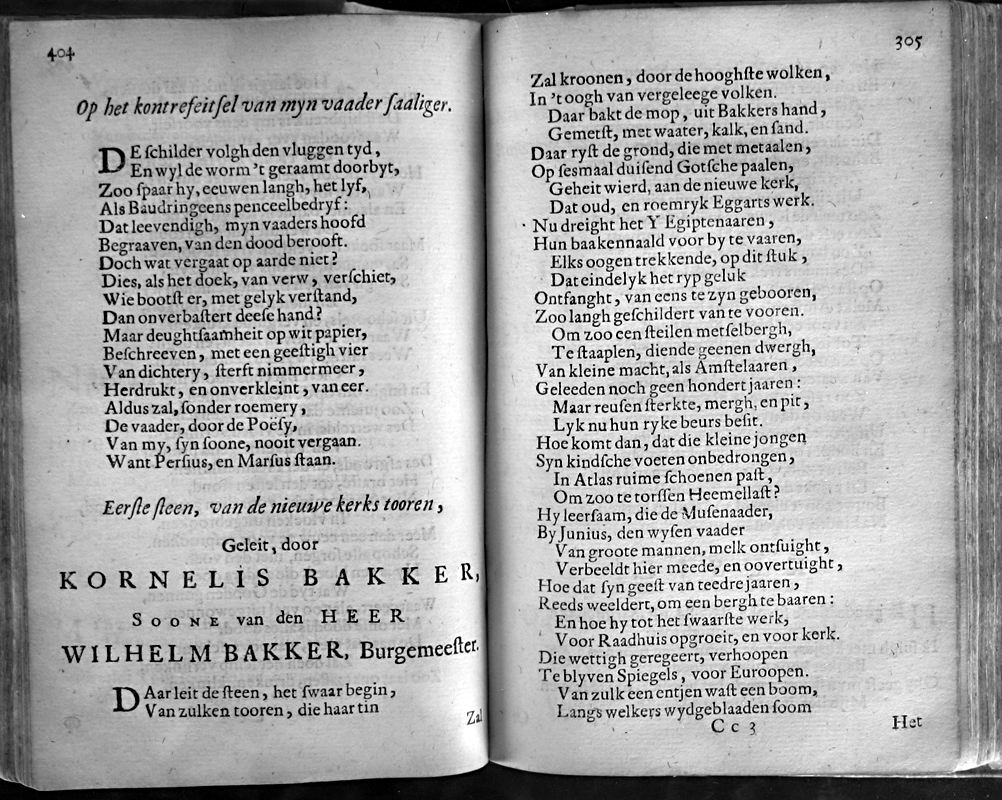 404
Op het kontrefeitſel van myn vaader ſaaliger.
DE ſchilder volgh den vluggen tyd,
En wyl de worm 't geraamt doorbyt,
Zoo ſpaar hy, eeuwen langh, het lyf,
Als Baudringeens penceelbedryf:
Dat leevendigh, myn vaaders hoofd
Begraaven, van den dood berooft.
Doch wat vergaat op aarde niet?
Dies, als het doek, van verw, verſchiet,
Wie bootſt er, met gelyk verſtand,
Dan onverbaſtert deeſe hand?
Maar deughtſaamheit op wit papier,
Beſchreeven, met een geeſtigh vier
Van dichtery, ſterft nimmermeer,
Herdrukt, en onverkleint, van eer.
Aldus zal, ſonder roemery,
De vaader, door de Poëſy,
Van my, ſyn ſoone, nooit vergaan.
Want Perſius, en Marſus ſtaan.
Eerſte ſteen, van de nieuwe kerks tooren,
Geleit, door
KORNELIS BAKKER,
SOONE van den HEER
WILHELM BAKKER, Burgemeeſter.
DAar leit de ſteen, het ſwaar begin,
Van zulken tooren, die haar tin
Zal
305
Zal kroonen, door de hooghſte wolken,
In 't oogh van vergeleege volken.
Daar bakt de mop, uit Bakkers hand,
Gemetſt, met waater, kalk, en ſand.
Daar ryſt de grond, die met metaalen,
Op ſesmaal duiſend Gotſche paalen,
Geheit wierd, aan de nieuwe kerk,
Dat oud, en roemryk Eggarts werk.
Nu dreight het Y Egiptenaaren,
Hun baakennaald voor by te vaaren,
Elks oogen trekkende, op dit ſtuk,
Dat eindelyk het ryp geluk
Ontfanght, van eens te zyn gebooren,
Zoo langh geſchildert van te vooren.
Om zoo een ſteilen metſelbergh,
Te ſtaaplen, diende geenen dwergh,
Van kleine macht, als Amſtelaaren,
Geleeden noch geen hondert jaaren:
Maar reuſen ſterkte, mergh, en pit,
Lyk nu hun ryke beurs beſit.
Hoe komt dan, dat die kleine jongen
Syn kindſche voeten onbedrongen,
In Atlas ruime ſchoenen paſt,
Om zoo te torſſen Heemellaſt?
Hy leerſaam, die de Muſenaader,
By Junius, den wyſen vaader
Van groote mannen, melk ontſuight,
Verbeeldt hier meede, en oovertuight,
Hoe dat ſyn geeſt van teedre jaaren,
Reeds weeldert, om een bergh te baaren:
En hoe hy tot het ſwaarſte werk,
Voor Raadhuis opgroeit, en voor kerk.
Die wettigh geregeert, verhoopen
Te blyven Spiegels, voor Euroopen.
Van zulk een entjen waſt een boom,
Langs welkers wydgeblaaden ſoom
Cc 3
Het